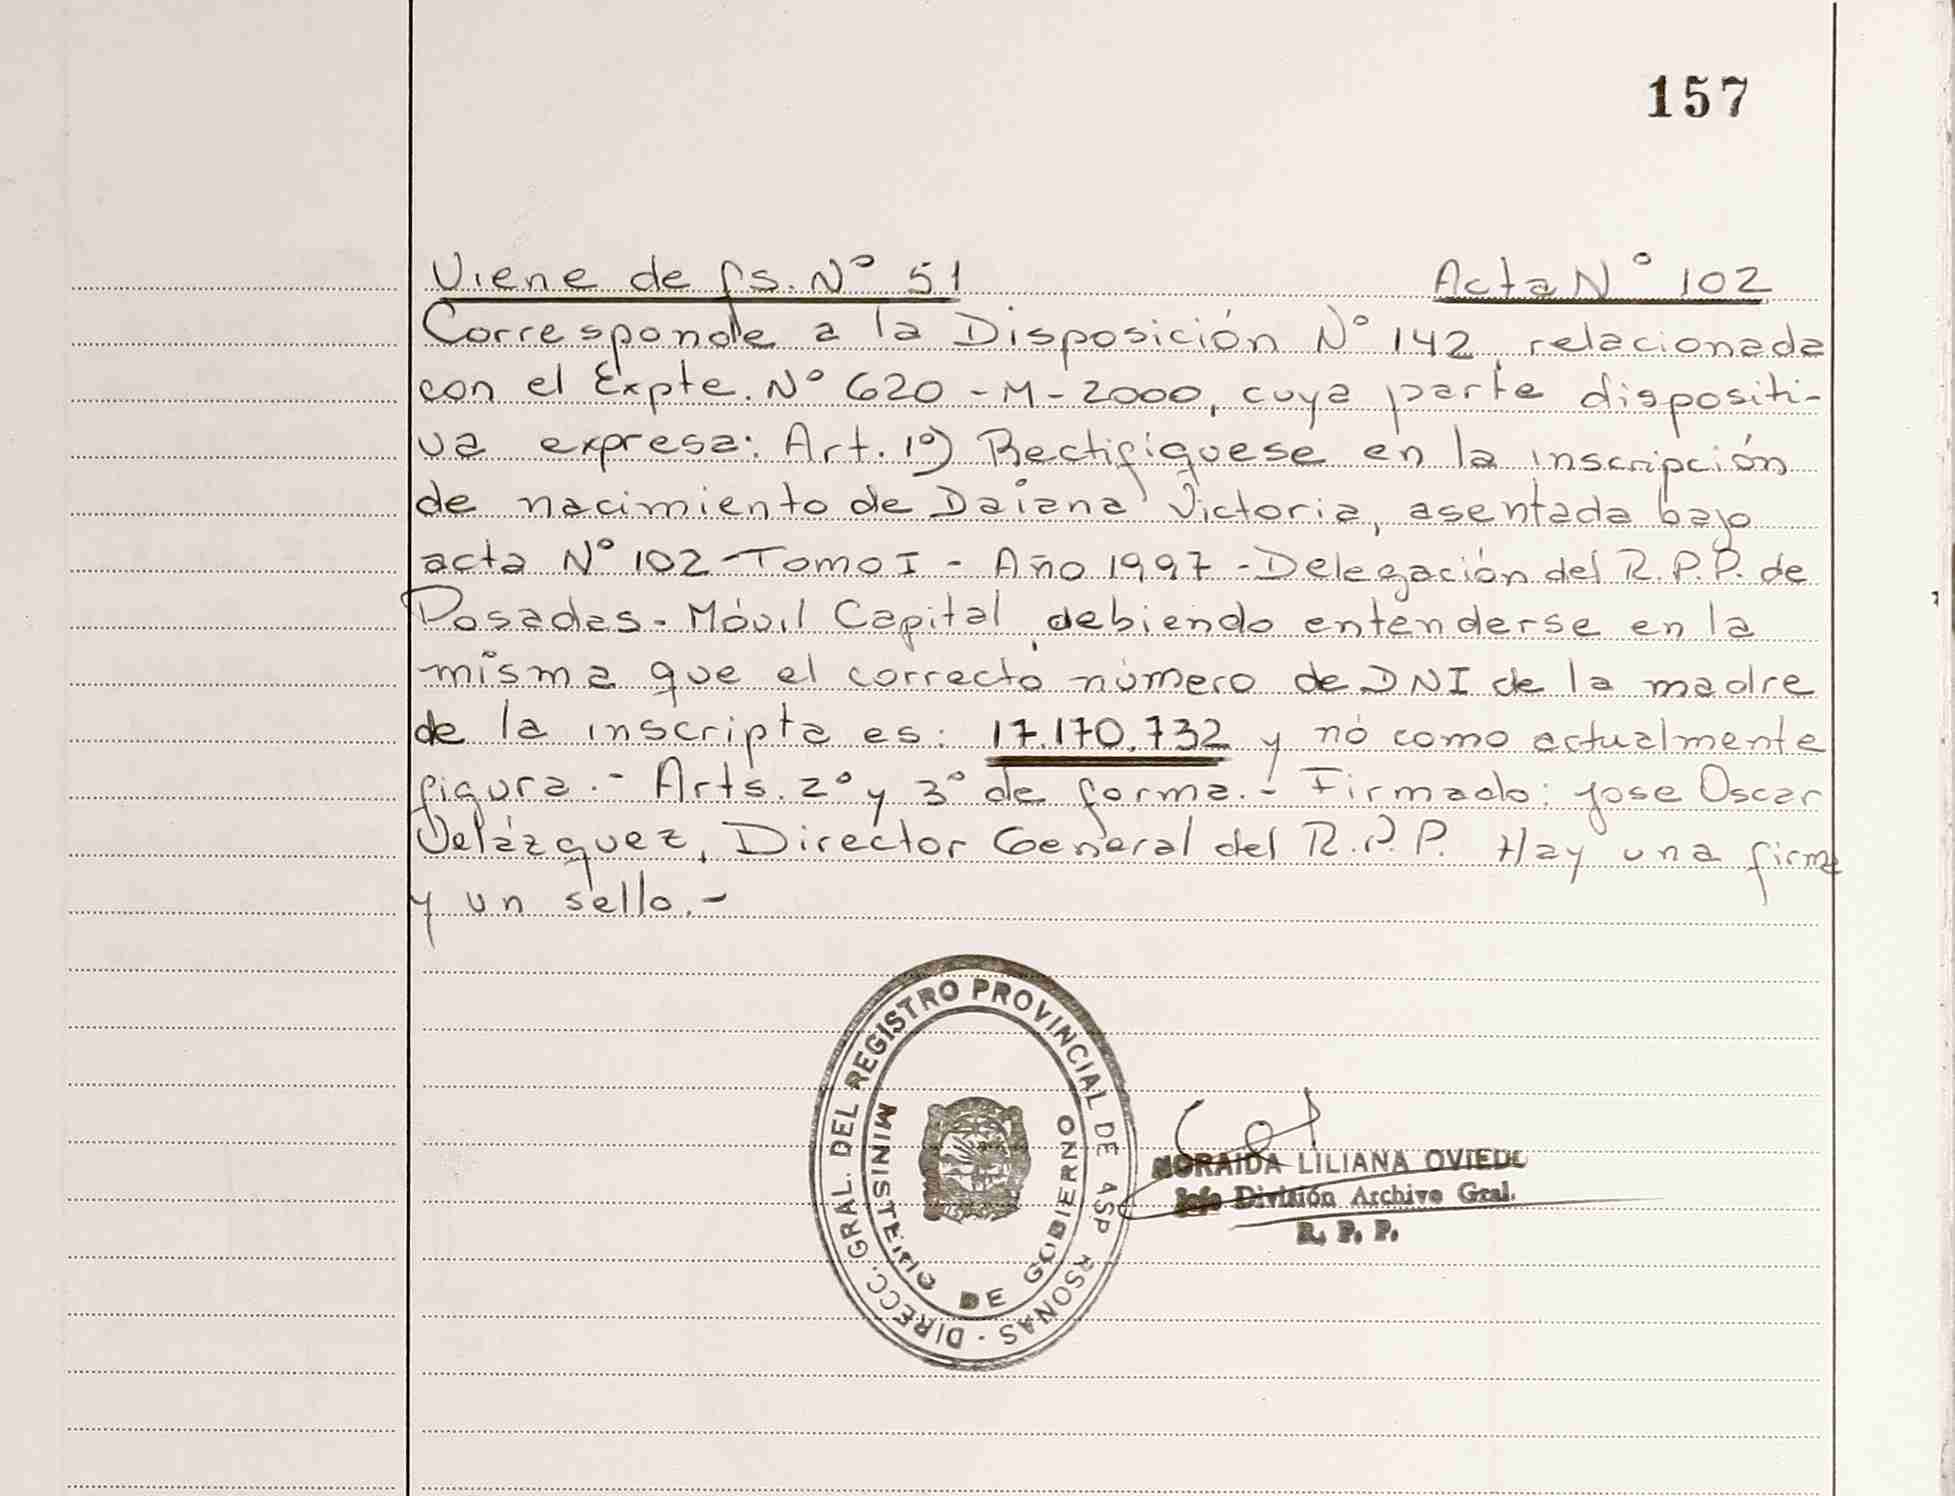 157
Viene de fs. N° 51 Acta N° 102
Corresponde a la Disposición N° 142, relacionada
con el Expte. N° 620 - M - 2000, cuya parte dispositi-
va expresa: Art. 1°) Rectifíquese en la inscripción
de nacimiento de Daiana Victoria, asentada bajo
acta N° 102 - Tomo I - Año 1997 - Delegación del R.P.P. de
Posadas - Móvil Capital, debiendo entenderse en la
misma que el correcto número de DNI de la madre
de la inscripta es: 17.170.732 y nó como actualmente
figura.- Arts. 2° y 3° de forma.- Firmado: Jose Oscar
Velázquez, Director General del R.P.P. Hay una firma
y un sello.-
DIRECC. GRAL. DEL REGISTRO PROVINCIAL DE LAS PERSONAS -
MINISTERIO DE GOBIERNO
NORAIDA LILIANA OVIEDO
Jefe División Archivo Gral.
R. P. P.